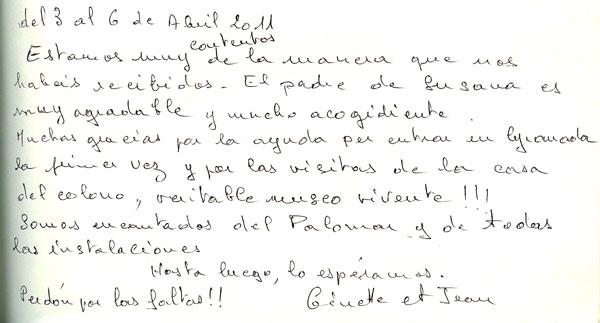 del 3 al 6 de Abril 2011
contentos
Estamos muy de la manera que nos
habeis recibidos. El padre de Susana es
muy agradable y mucho acogidiente.
Muchas gracias por la ayuda per entrar en Lyramada
la primer vez y por las visitas de la casa
del colono, veritable museo vivente !!!
Somos encantados del Palomar y de todas
las instalaciones
Hasta luego, lo espéramos.
Perdón por las faltas!! Ginette et Jean